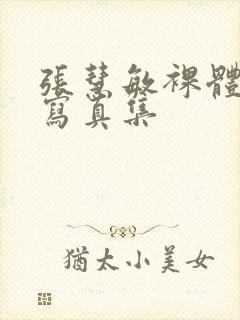 張慧敏裸體
寫真集
猶太小美女